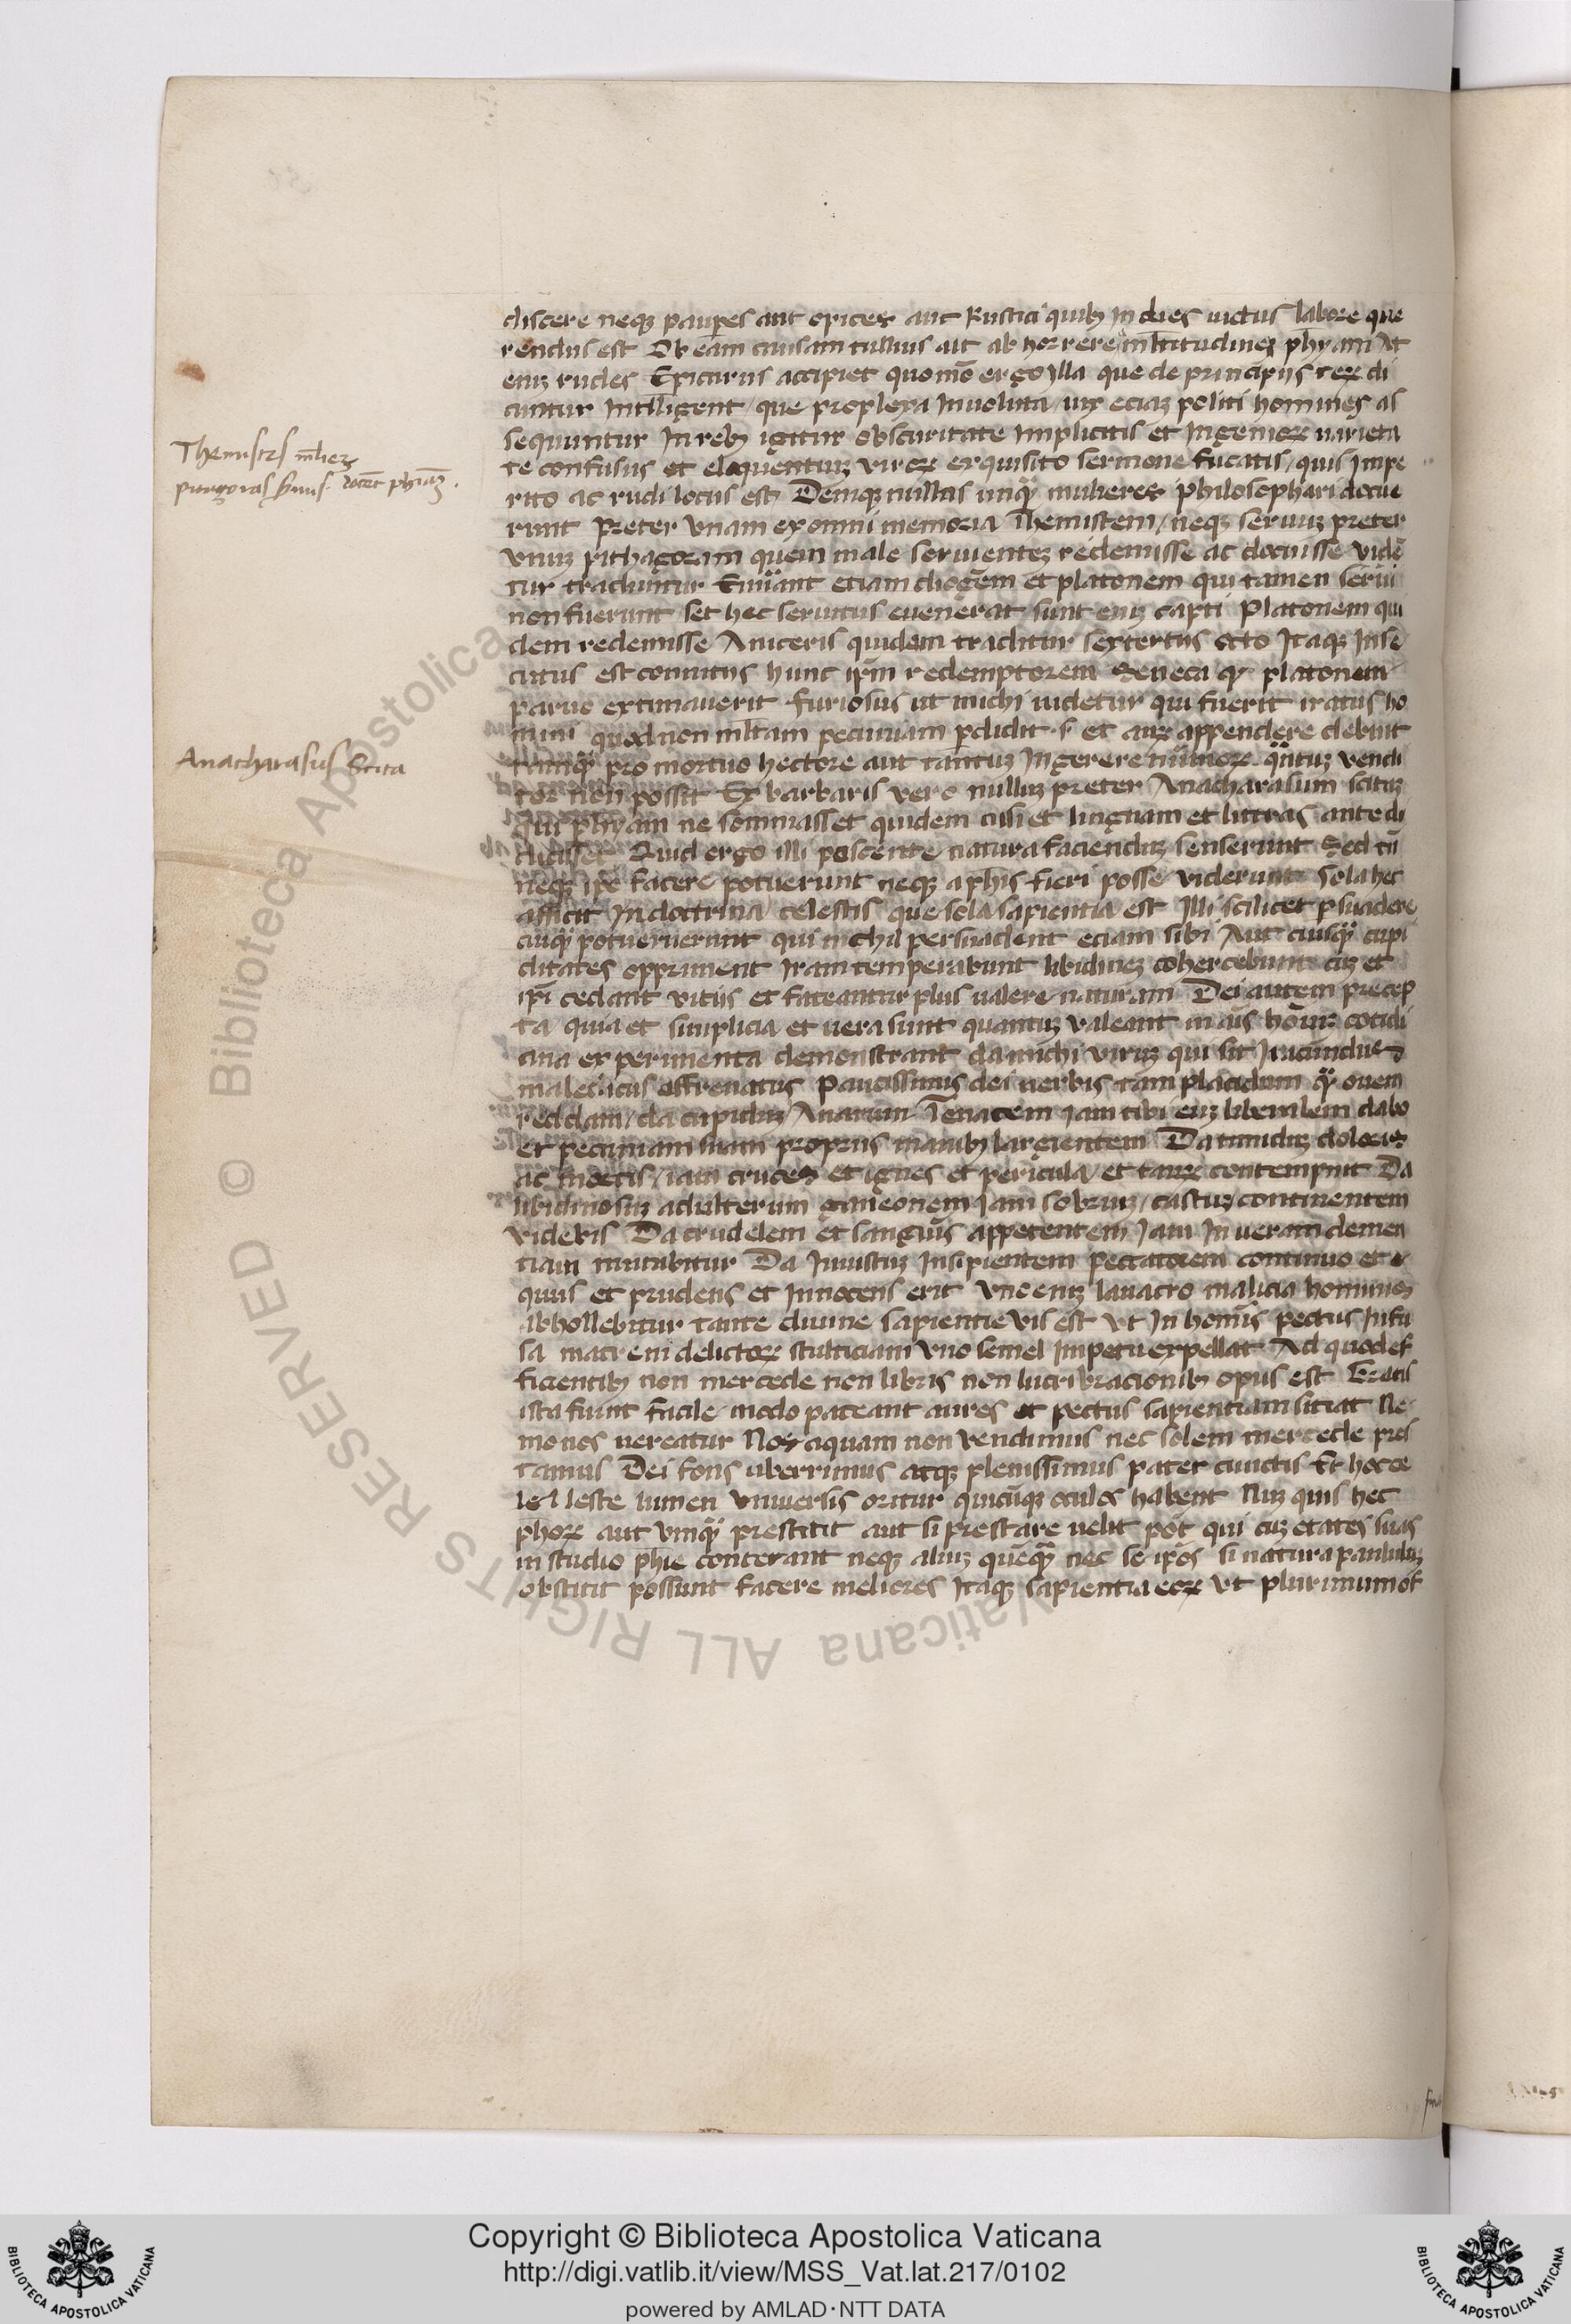 Themistes mlieʒ
pitagoras seruus docet phiaʒ.
Anacharasus Scita
discere neqʒ pauperes aut opices aut Rustici quibʒ in dies uictus labore que
rendus est Ob eam causam tullius ait ab horrere a mltitudineʒ phyam At
eniʒ rudes Epicurus accipiet quomo ergo illa que de principijs reꝝ di
cuntur intelligent / que proplexa Inuoluta / uix eciaʒ politi homines as
sequuntur In rebʒ igitur obscuritate implicitis et Ingenioꝝ uarieta
te confusus et eloquentiuʒ viroꝝ exquisito sermone fucatis / quis Impe
rito ac rudi locus est Deniqʒ nullas unqᷓ mulieres philosophari docue
runt Preter vnam ex omni memoria Themistem / neqʒ seruuʒ preter
vnuʒ pithagoram quem male seruienteʒ redemisse ac docuisse vide
tur traduntur Enuᷓant etiam diogēm et platonem qui tamen serui
non fuerunt set hec seruitus euenerat sunt eniʒ capti Platonem qui
dem redemisse Aniceris quidam traditur sextertijs octo Itaqʒ Inse
cutus est conuitijs hunc ipm redemptorem Seneca qꝛ platonem
paruo extimauerit furiosus ut michi uidetur qui fuerit iratus ho
mini quod non mltam pecuniam pdidit s et auꝝ appendere debuit
tamqᷓ pro mortuo hectore aut tantuʒ Ingerere numoꝝ qᷓntuʒ vendi
tor non possit Ex barbaris vero nulluʒ preter Anacharasum scituʒ
qui phyam ne somniasset quidem nisi et linguam et litteras ante di
dicisset Quid ergo illi poscente natura faciendu senserunt Sed cū
neqʒ ipi facere potuerunt neqʒ a phis fieri posse viderunt sola hec
afficit In doctrina celestis que sola sapientia est Illi scilicet psuadere
cuiqᷓ potueruerunt qui nichil persuadent eciam sibi Aut cuiusqᷓ cupi
ditates oppriment Iram temperabunt libidineʒ cohercebunt cuʒ et
ipi cedant vitijs et fateantur plus ualere naturam Dei autem precep
ta quia et simplicia et uera sunt quantuʒ valeant in ais hoīuʒ cotidi
ana experimenta demonstrant da michi viruʒ qui sit Iracundus
maledicus effrenatus Paucissimis dei uerbis tam placidum qᷓ ouem
reddam / da cupiduʒ Auarum Tenacem iam tibi euʒ liberalem dabo
et pecuniam suam proprijs manibʒ largientem Da timiduʒ doloris
ac mortis / iam cruces et ignes et pericula / et tauꝝ contempnit Da
libidinosuʒ adulterum ganeonem Iam sobriuʒ / castuʒ continentem
videbis Da crudelem et sanguis appetentem Iam In ueram clemen
tiam mutabitur Da Iniustuʒ Insipientem peccatorem continuo et e
quus et prudens et Innocens erit Vno eniʒ lauacro malicia hominis
abhollebitur tante diuine sapientie vis est vt In homis pectus Infu
sa matrem delictoꝝ stulticiam vno semel Impetu expellat Ad quod ef
ficientibʒ non mercede non libris non lucribracionibʒ opus est Gratis
ista fiunt facile modo pateant aures et pectus sapientiam sitiat Ne
mo nos uereatur Nos aquam non vendimus nec solem mercede pres
tamus Dei fons uberrimus atqʒ plenissimus patet cunctis Et hoc ce
leste lumen vniuersis oritur quicūqʒ oculos habent Nuʒ quis hec
phoꝝ aut vnqᷓ prestitit aut si prestare uelit pot qui cuʒ etates suas
in studio phie conterant neqʒ aliuʒ queqᷓ nec se ipos si natura paululuʒ
obstitit possunt facere meliores Itaqʒ sapientia eoꝝ vt plurimum ef
Copyright © Biblioteca Apostolica Vaticana
http://digi.vatlib.it/view/MSS_Vat.lat.217/0102
powered by AMLAD·NTT DATA
BIBLIOTECA APOSTOLICA VATICANA
BIBLIOTECA APOSTOLICA VATICANA
© Biblioteca Apostolica Vaticana ALL RIGHTS RESERVED